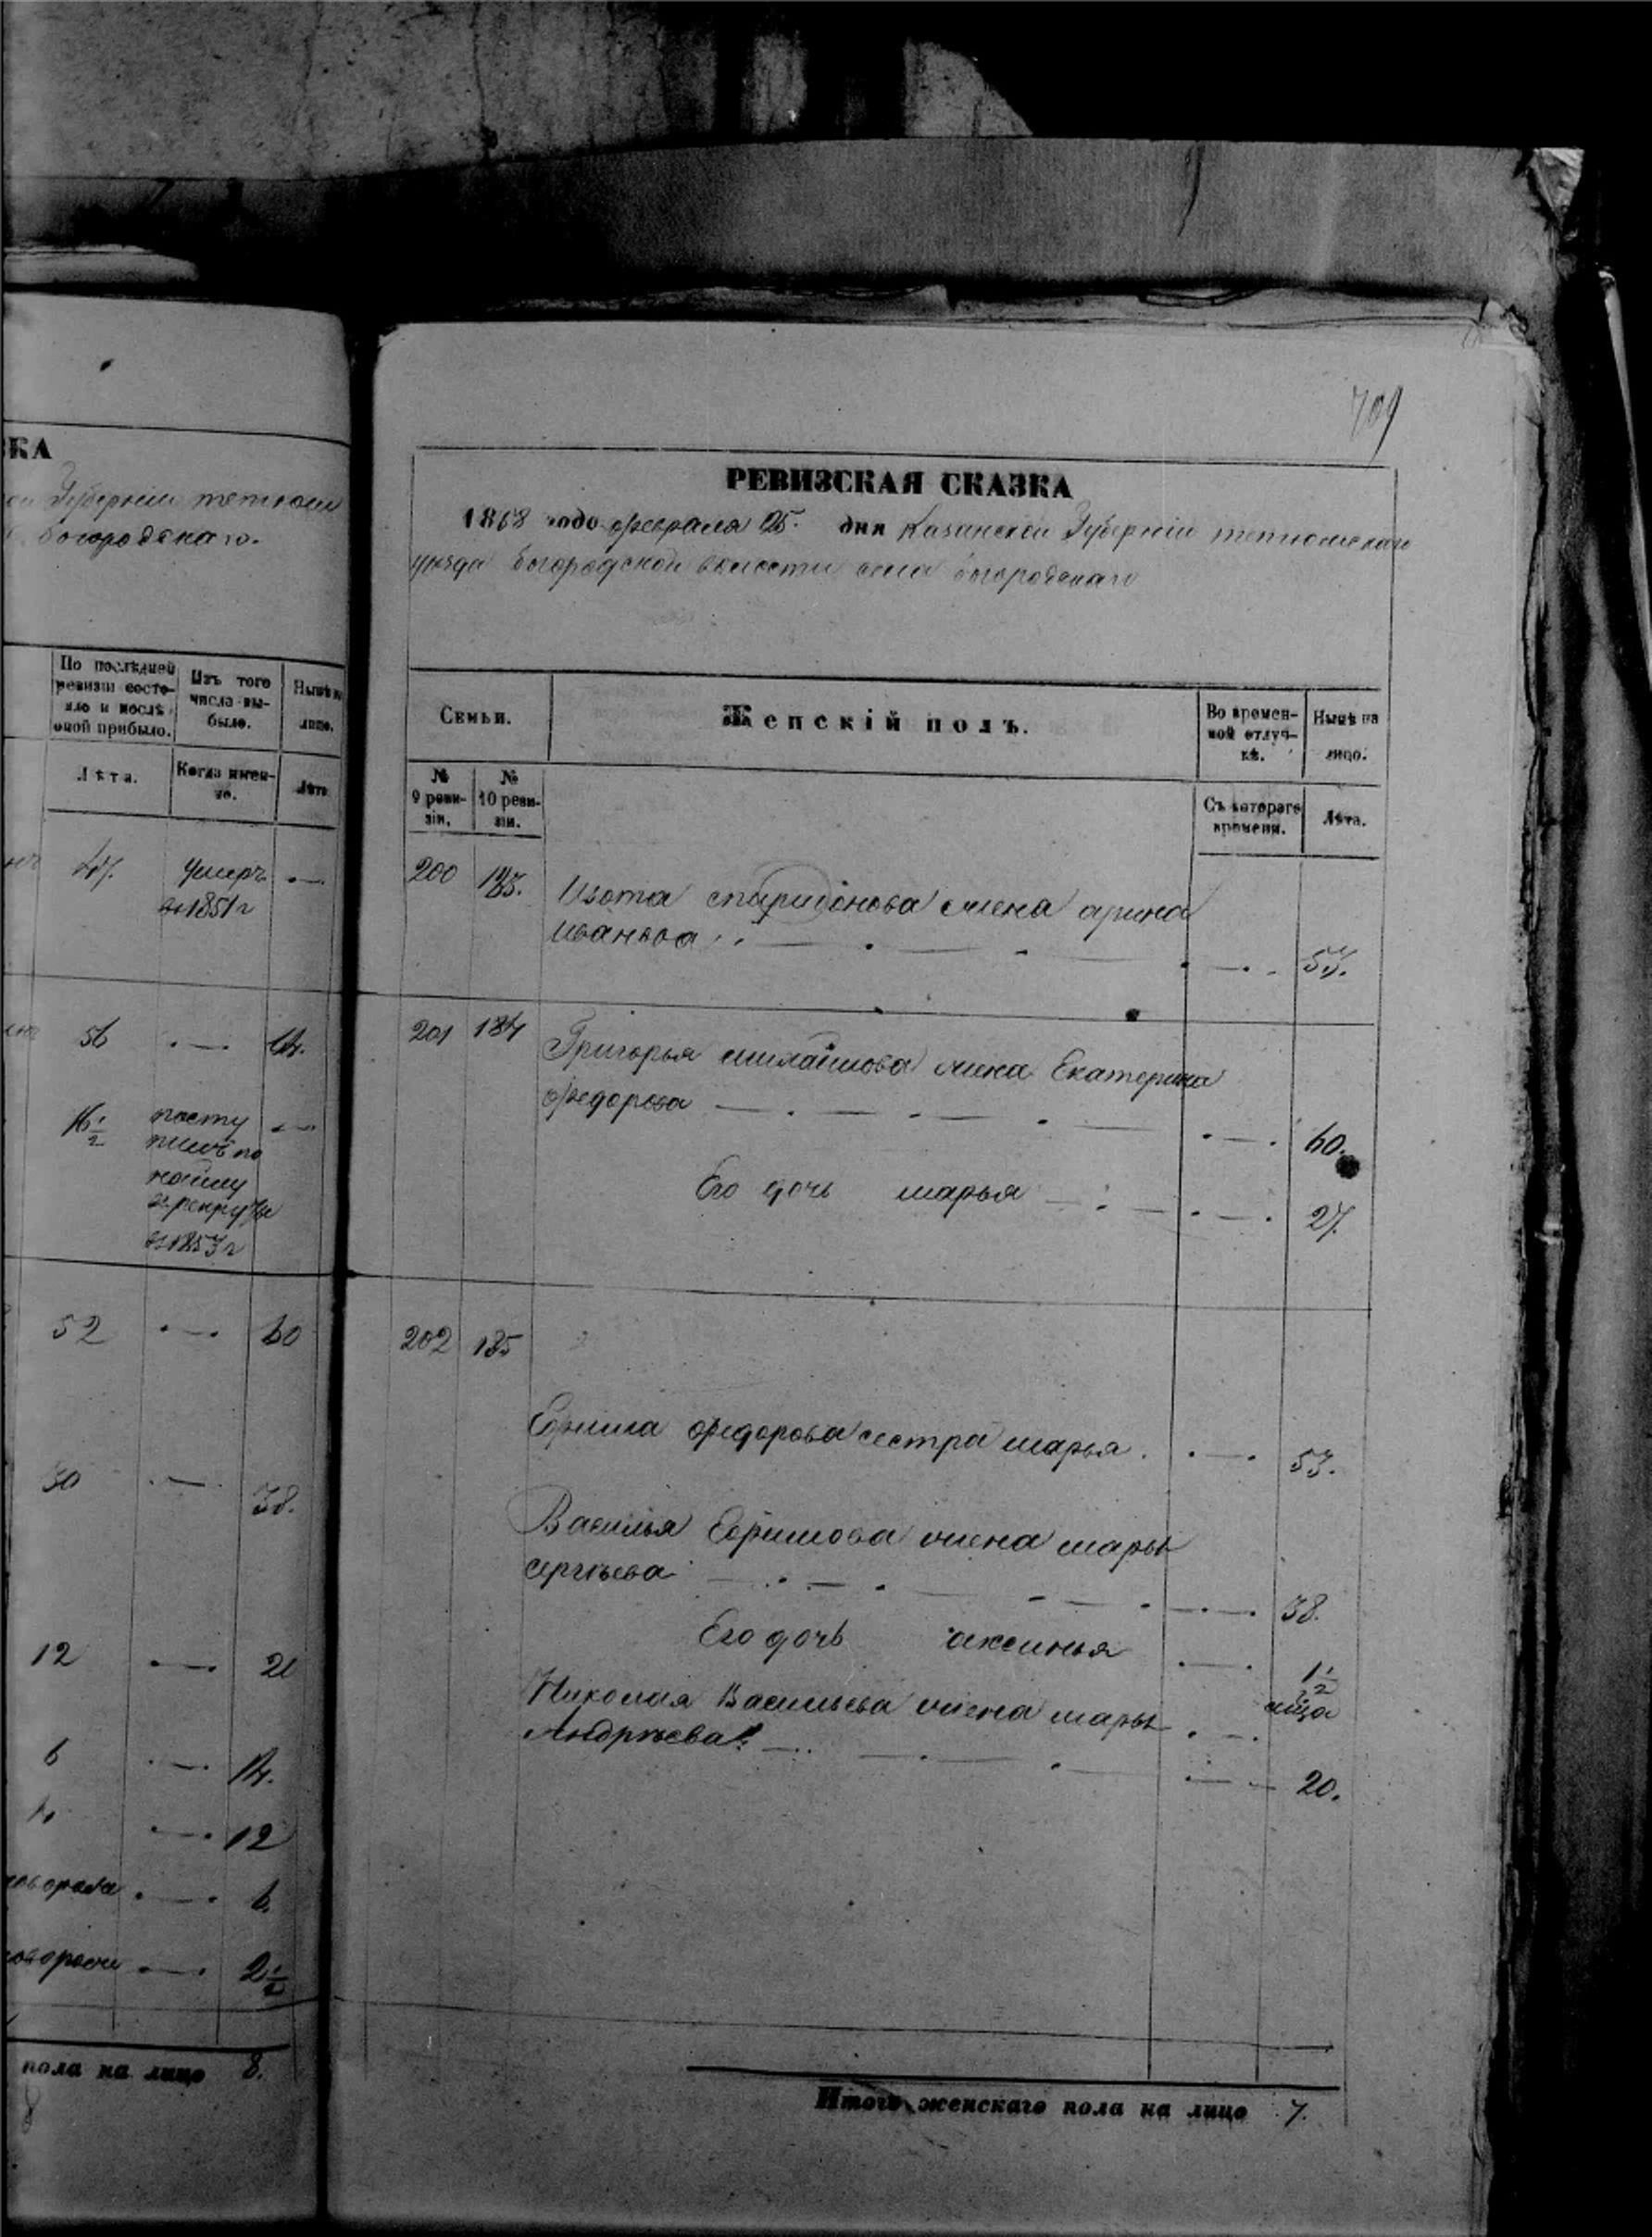 ЗКА
Губерніи тетюш
богородскаго.
По послѣдней ревизіи состояло и послѣ оной прибыло.
Изъ того числа выбыло.
Нынѣ на лицо.
Лѣта.
Когда именно.
Лѣта
47. умеръ —
въ 1851 г
56 —
16 1/2 посту —
пилъ по
найму
в рекруты
въ 1853 г
52 — 60
30 — 38.
12 — 20
6 — 14.
4 — 12
— 6.
— 2 1/2
пола на лицо 8.
709
РЕВИЗСКАЯ СКАЗКА
1858 года февраля 25. дня Казанской Губерніи тетюшскаго
уѣзда богородской волости села богородскаго
Семьи.
Женскій полъ.
Во временной отлучкѣ.
Нынѣ на лицо.
№ 9 ревизіи.
№ 10 ревизіи.
Съ котораго времени.
Лѣта.
200 183. Изота спиридонова жена арина
иванова — 57.
201 184 Григорья михайлова жена Екатерина
федорова — 60.
Его дочь марья — 27.
202 185
Ефима федорова сестра марья. — 53.
Василья Ефимова жена марья
сергѣева — 38.
Его дочь аксинья — 1 1/2
мѣца
Николая Васильева жена марья
Андрѣева — 20.
Итого женскаго пола на лицо 7.